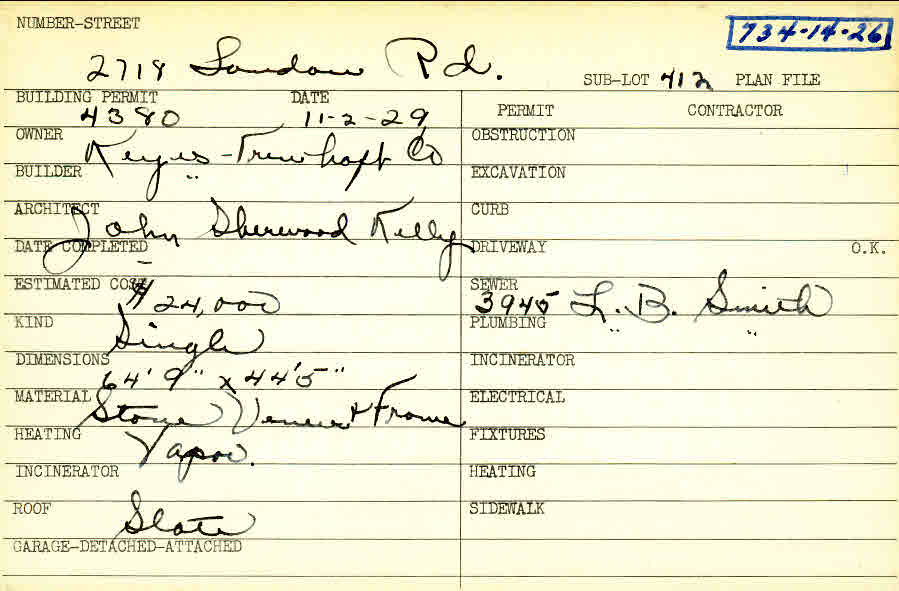 NUMBER-STREET
734-14-26
2718 Landon Rd.
SUB-LOT 412 PLAN FILE
BUILDING PERMIT DATE
4380 11-2-29
PERMIT CONTRACTOR
OWNER
Keyes-Treuhaft Co
OBSTRUCTION
BUILDER
"
EXCAVATION
ARCHITECT
John Sherwood Kelly
CURB
DATE COMPLETED
-
DRIVEWAY O.K.
ESTIMATED COST
$24,000
SEWER
3945 L. B. Smith
KIND
Single
PLUMBING
" "
DIMENSIONS
64' 9" x 44' 5"
INCINERATOR
MATERIAL
Stone Veneer & Frame
ELECTRICAL
HEATING
Vapor.
FIXTURES
INCINERATOR
HEATING
ROOF
Slate
SIDEWALK
GARAGE-DETACHED-ATTACHED